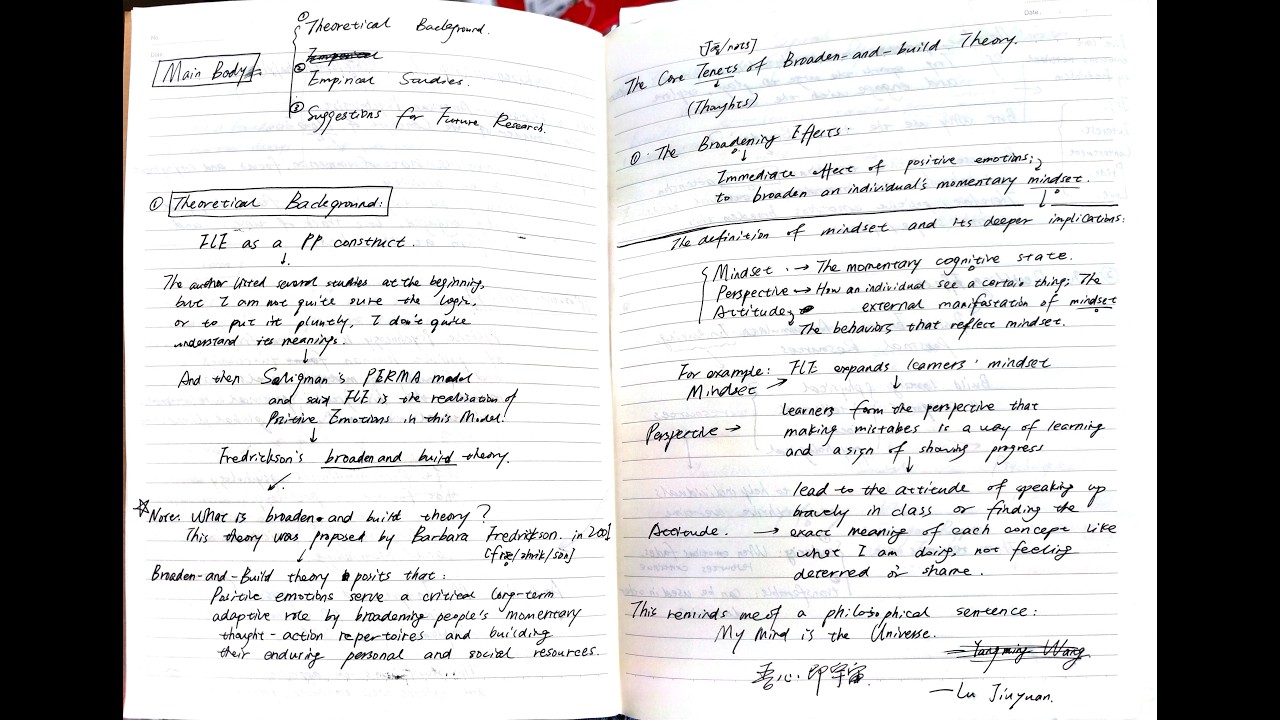 ① Theoretical Background.
Main Body:
② Empirical Studies.
③ Suggestions for Future Research.
① Theoretical Background:
FLE as a PP construct.
↓
The author listed several studies at the beginning,
but I am not quite sure the logic,
or to put it pluntly, I don't quite
understand its meanings.
↓
And then Seligman's PERMA model
and said FLE is the realization of
Positive Emotions in this Model.
↓
Fredrickson's broaden and build theory.
↙
☆ Note: What is broaden-and build theory?
This theory was proposed by Barbara Fredrikson. in 2001
↓
Broaden-and-Build theory posits that:
Positive emotions serve a critical long-term
adaptive role by broadening people's momentary
thought-action repertoires and building
their enduring personal and social resources.
Date.
The Core Tenets of Broaden-and-build Theory.
↓
(Thoughts)
①. The Broadening Effects.
↓
Immediate effect of positive emotions;
to broaden an individual's momentary mindset.
↓
The definition of mindset and its deeper implications:
Mindset → The momentary cognitive state.
Perspective → How an individual see a certain thing; The
Attitude external manifastation of mindset
The behaviors that reflect mindset.
For example: FLE expands learners' mindset
Mindset → ↓
learners form the perspective that
Perspective → making mistakes is a way of learning
and a sign of showing progress
↓
lead to the attitude of speaking up
bravely in class or finding the
Attitude. → exact meaning of each concept like
what I am doing, not feeling
deterred or shame.
This reminds me of a philosophical sentence:
My Mind is the Universe.
Yangming Wang
吾心即宇宙.
—Lu Jiuyuan.